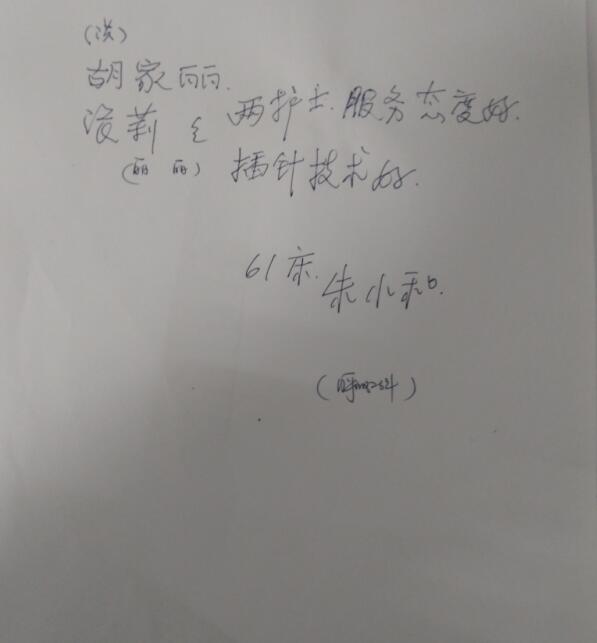 (洪)
胡家丽.
没莉 两护士.服务态度好.
(丽丽) 插针技术好.
61床. 朱小和.
(呼吸科)